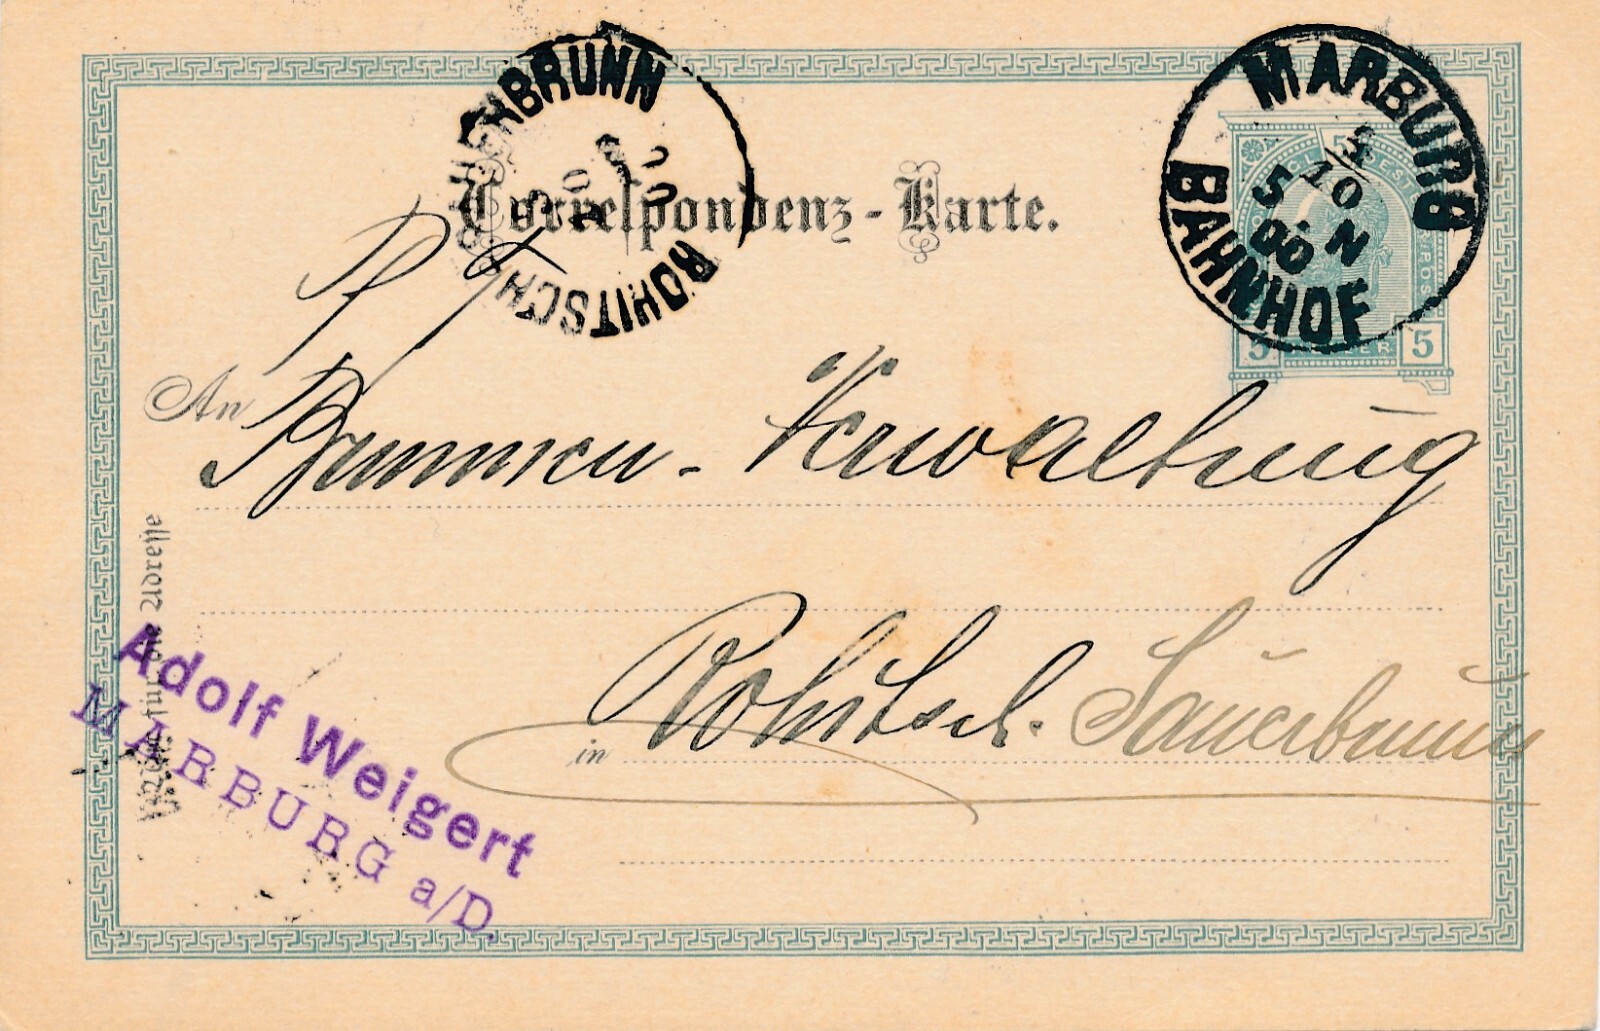 Correspondenz-Karte.
MARBURG
3
10
5.N
00
BAHNHOF
5
5
5
ROHITSCH
P. T.
An Brunnen-Verwaltung
in Rohitsch-Sauerbrunn
Adolf Weigert
MARBURG a/D.